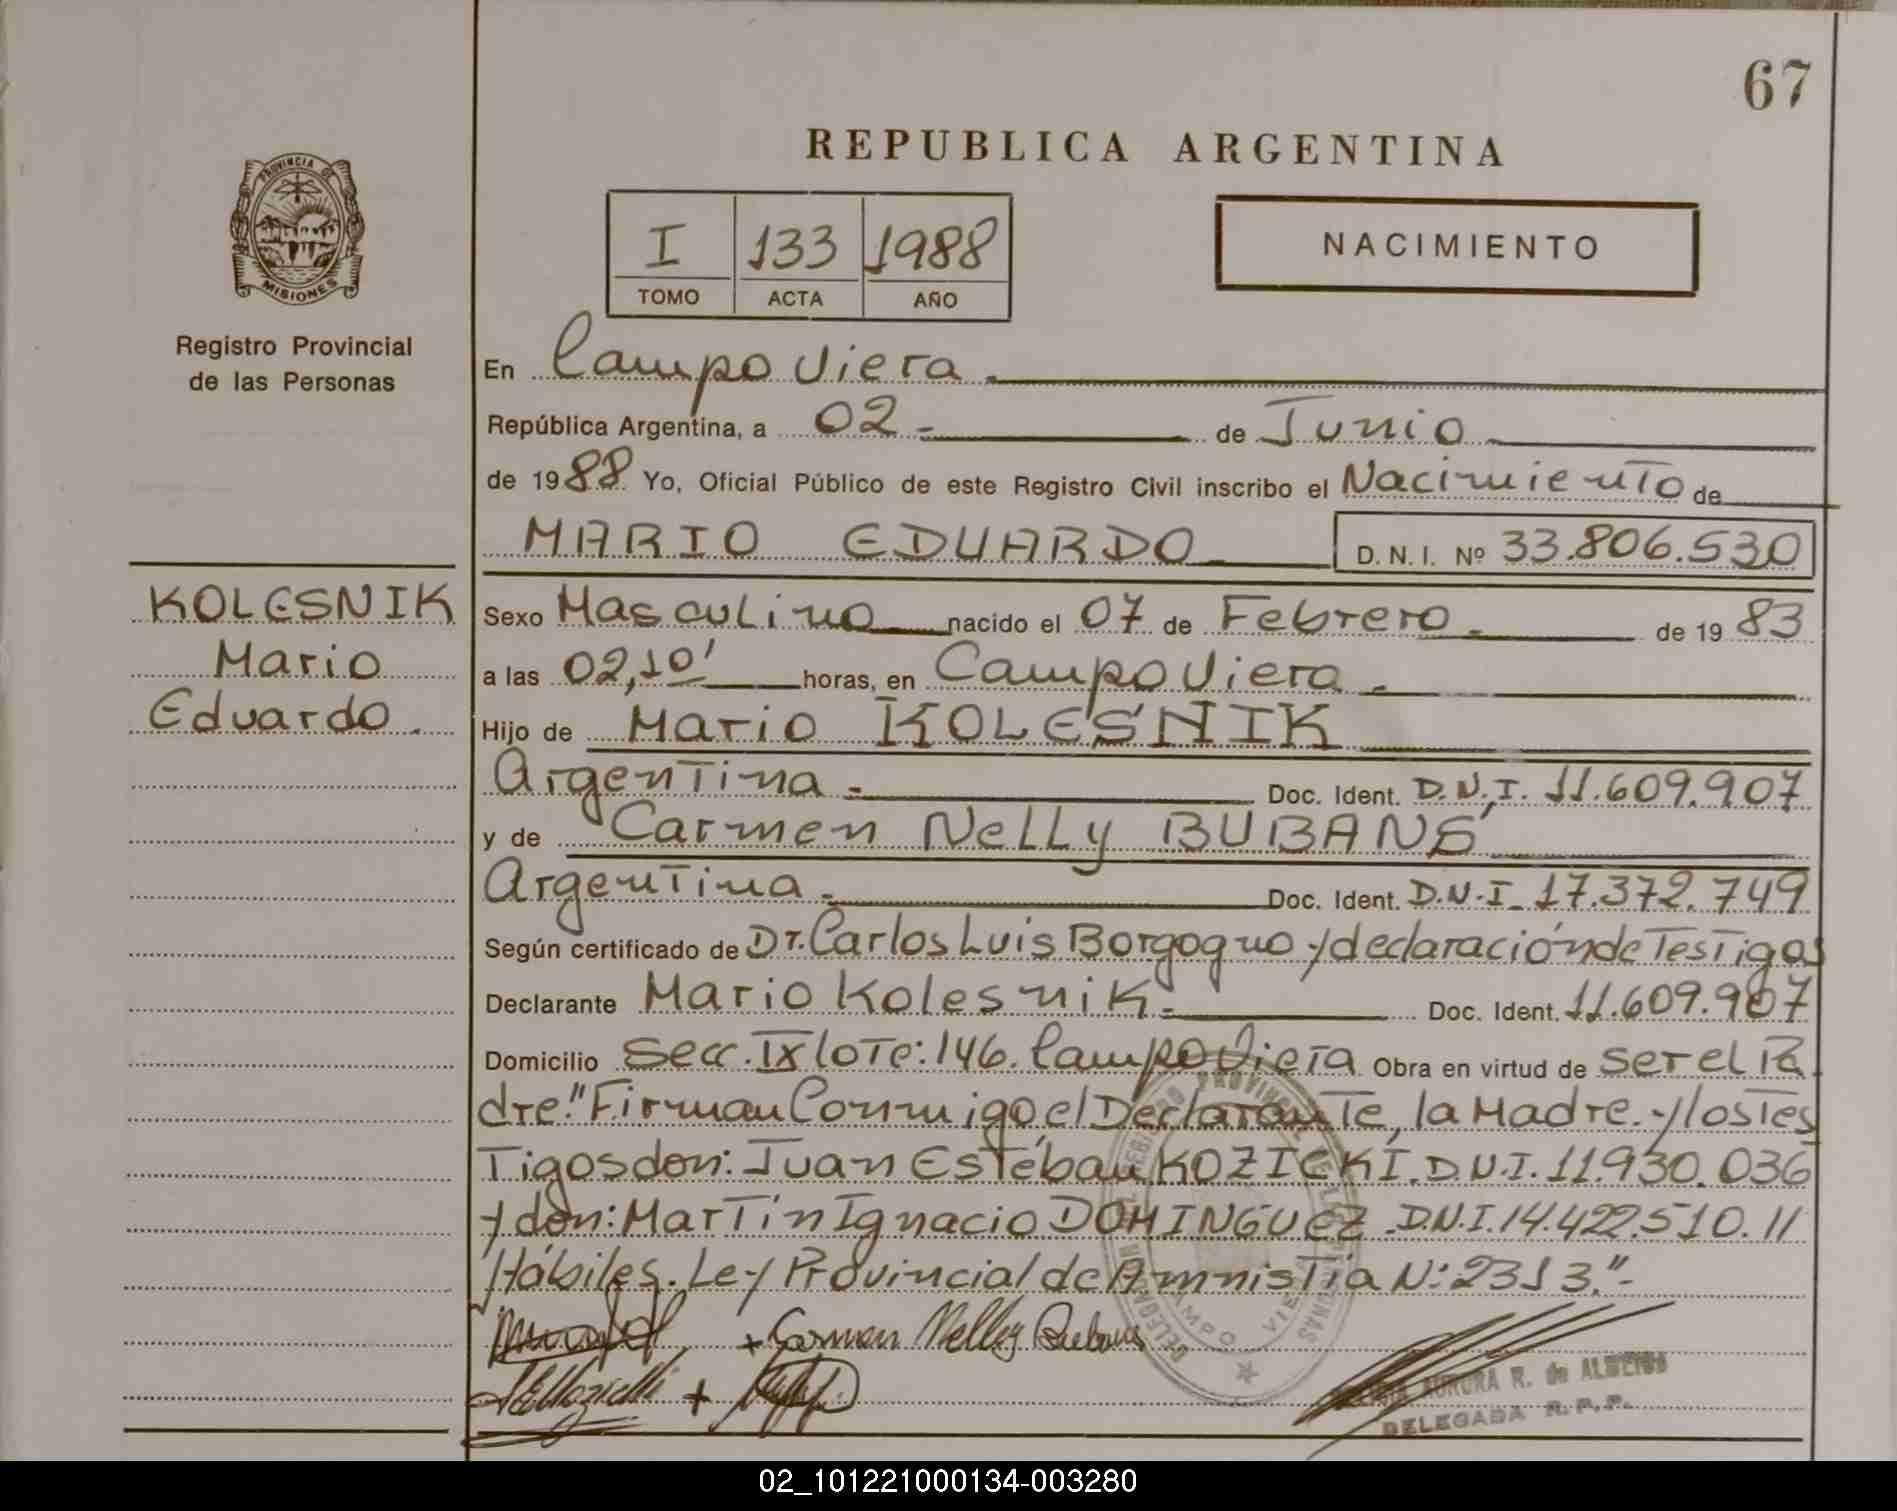 67
REPUBLICA ARGENTINA
PROVINCIA DE
MISIONES
Registro Provincial
de las Personas
I 133 1988
TOMO ACTA AÑO
NACIMIENTO
En Campo Viera.
República Argentina, a 02 - de Junio
de 1988 Yo, Oficial Público de este Registro Civil inscribo el Nacimiento de
MARIO EDUARDO D. N. I. Nº 33.806.530
KOLESNIK
Mario
Eduardo.
Sexo Masculino nacido el 07 de Febrero - de 19 83
a las 02,10' horas, en Campo Viera -
Hijo de Mario KOLESNIK
Argentina - Doc. Ident. D.N.I. 11.609.907
y de Carmen Nelly BUBANS
Argentina - Doc. Ident. D.N.I. 17.372.749
Según certificado de Dr. Carlos Luis Borgogno y declaración de Testigos
Declarante Mario Kolesnik - Doc. Ident. 11.609.907
Domicilio Secc. IX lote: 146. Campo Viera Obra en virtud de ser el Pa
dre." Firman Conmigo, el Declarante, la Madre. y los Tes
Tigos don: Juan Estéban KOZICKI. D.N.I. 11.930.036
y don: Martin Ignacio DOMINGUEZ. D.N.I. 14.422.510. //
Hábiles. Ley Provincial de Amnistia N: 2313."-
+ Carmen Nelly Bubans
+
AURORA R. de ALMEIDA
DELEGADA R.P.P.
02_101221000134-003280